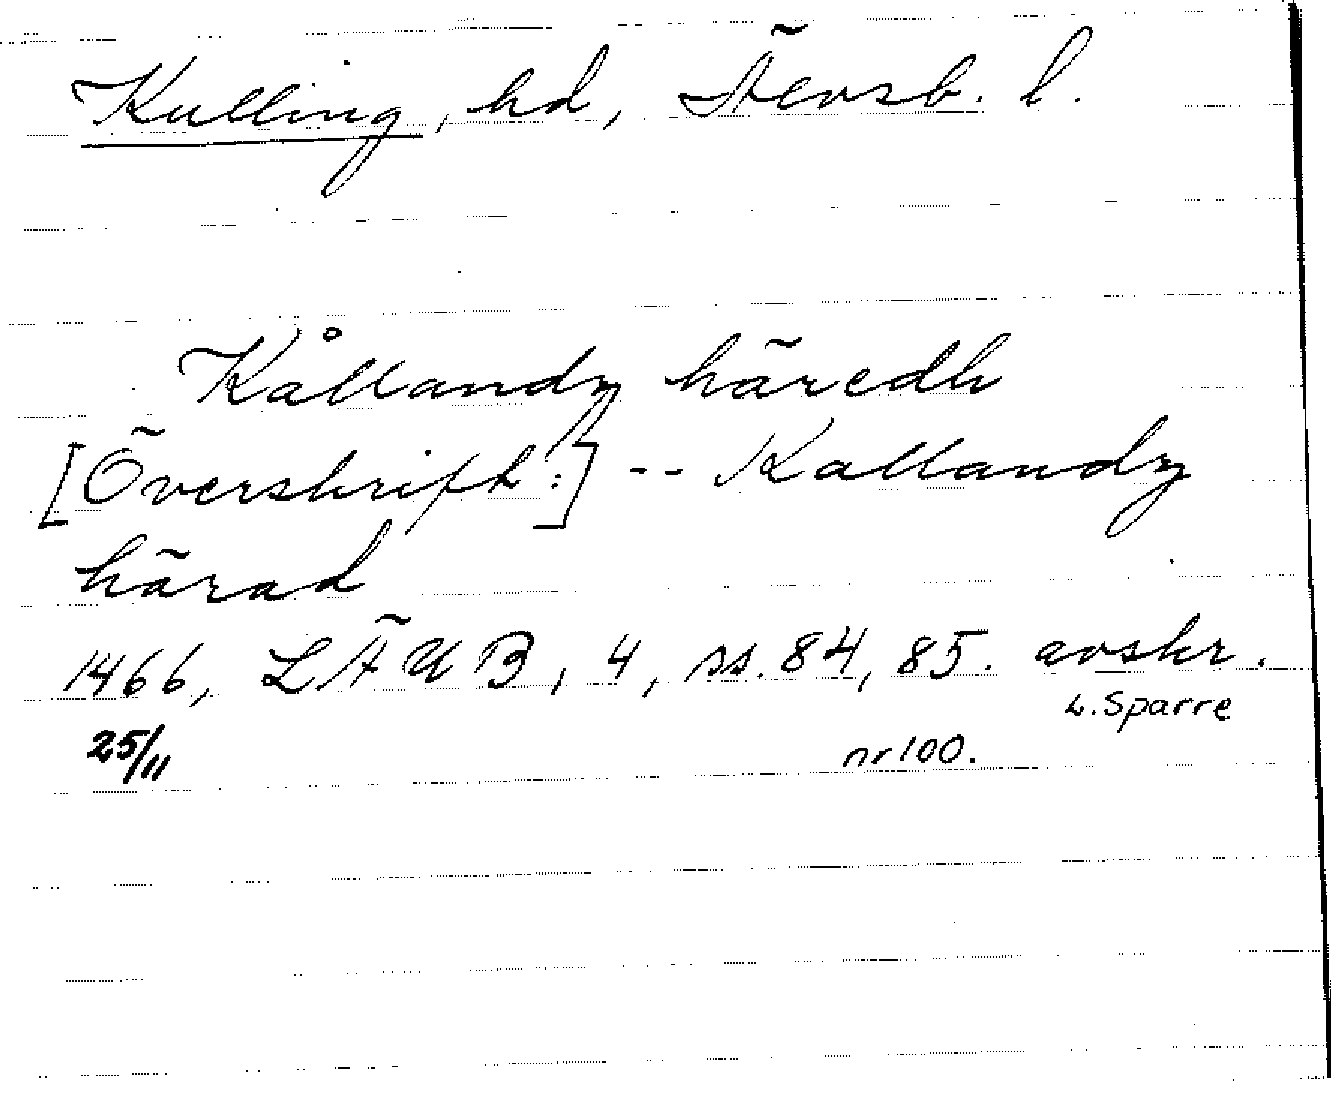 Kulling, hd, Älvsb. l.
Kållandz häredh
[Överskrift:] -- Kallandz
härad
1466, LÄUB, 4, ss. 84, 85. avskr.
L. Sparre
25/11 nr 100.